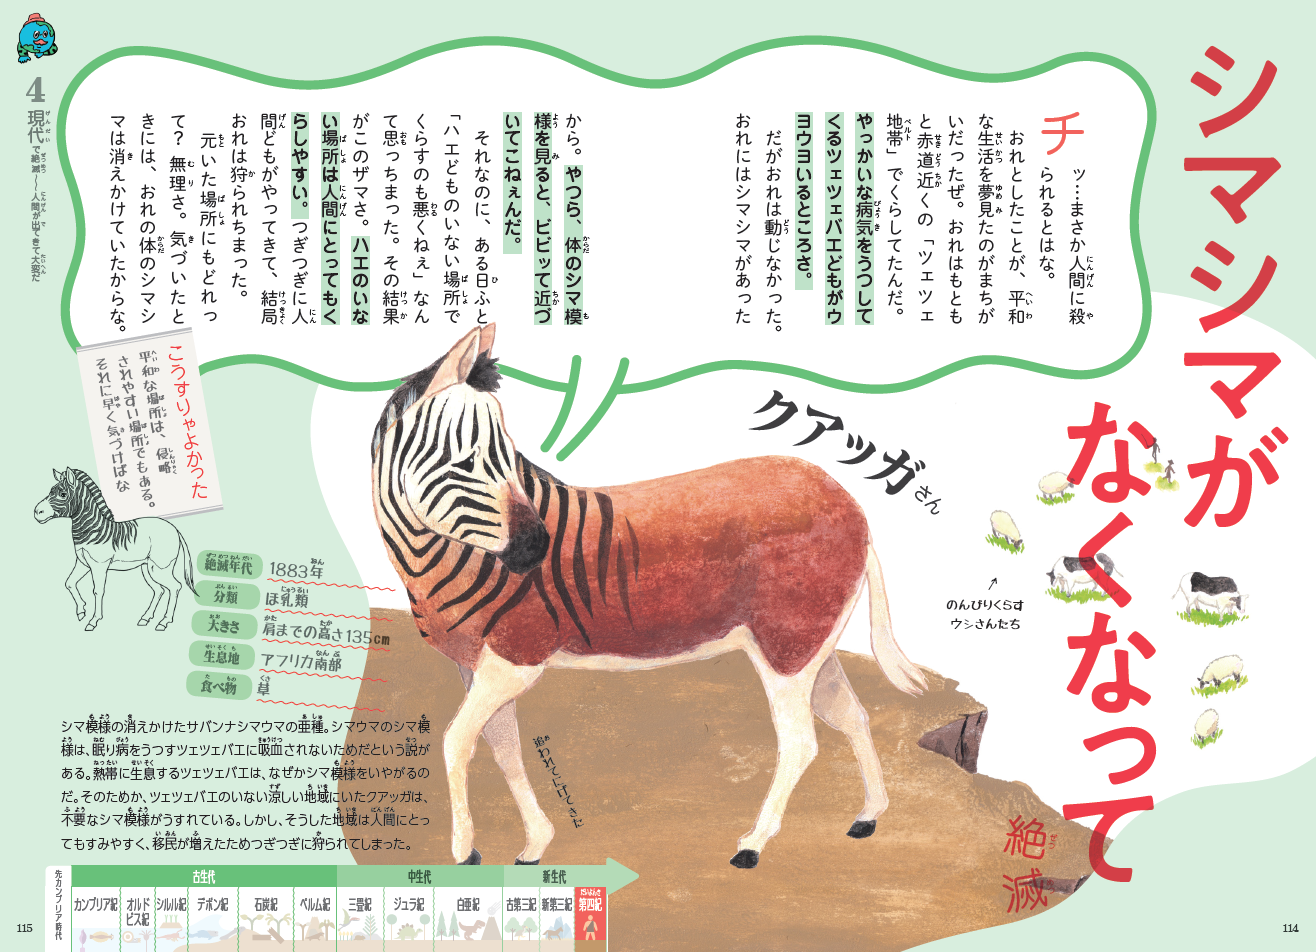 シマシマが
なくなって
絶滅
チッ…まさか人間に殺
られるとはな。
おれとしたことが、平和
な生活を夢見たのがまちが
いだったぜ。おれはもとも
と赤道近くの「ツェツェ
地帯」でくらしてたんだ。
やっかいな病気をうつして
くるツェツェバエどもがウ
ヨウヨいるところさ。
だがおれは動じなかった。
おれにはシマシマがあった
から。やつら、体のシマ模
様を見ると、ビビッて近づ
いてこねぇんだ。
それなのに、ある日ふと
「ハエどものいない場所で
くらすのも悪くねぇ」なん
て思っちまった。その結果
がこのザマさ。ハエのいな
い場所は人間にとってもく
らしやすい。つぎつぎに人
間どもがやってきて、結局
おれは狩られちまった。
元いた場所にもどれっ
て？ 無理さ。気づいたと
きには、おれの体のシマシ
マは消えかけていたからな。
クアッガさん
のんびりくらす
ウシさんたち
追われてにげてきた
こうすりゃよかった
平和な場所は、侵略
されやすい場所でもある。
それに早く気づけばな
絶滅年代 1883年
分類 ほ乳類
大きさ 肩までの高さ135cm
生息地 アフリカ南部
食べ物 草
シマ模様の消えかけたサバンナシマウマの亜種。シマウマのシマ模
様は、眠り病をうつすツェツェバエに吸血されないためだという説が
ある。熱帯に生息するツェツェバエは、なぜかシマ模様をいやがるの
だ。そのためか、ツェツェバエのいない涼しい地域にいたクアッガは、
不要なシマ模様がうすれている。しかし、そうした地域は人間にとっ
てもすみやすく、移民が増えたためつぎつぎに狩られてしまった。
先カンブリア時代
古生代 中生代 新生代
カンブリア紀 オルドビス紀 シルル紀 デボン紀 石炭紀 ペルム紀 三畳紀 ジュラ紀 白亜紀 古第三紀 新第三紀 第四紀
4 現代で絶滅〜人間が出てきて大変だ
115
114